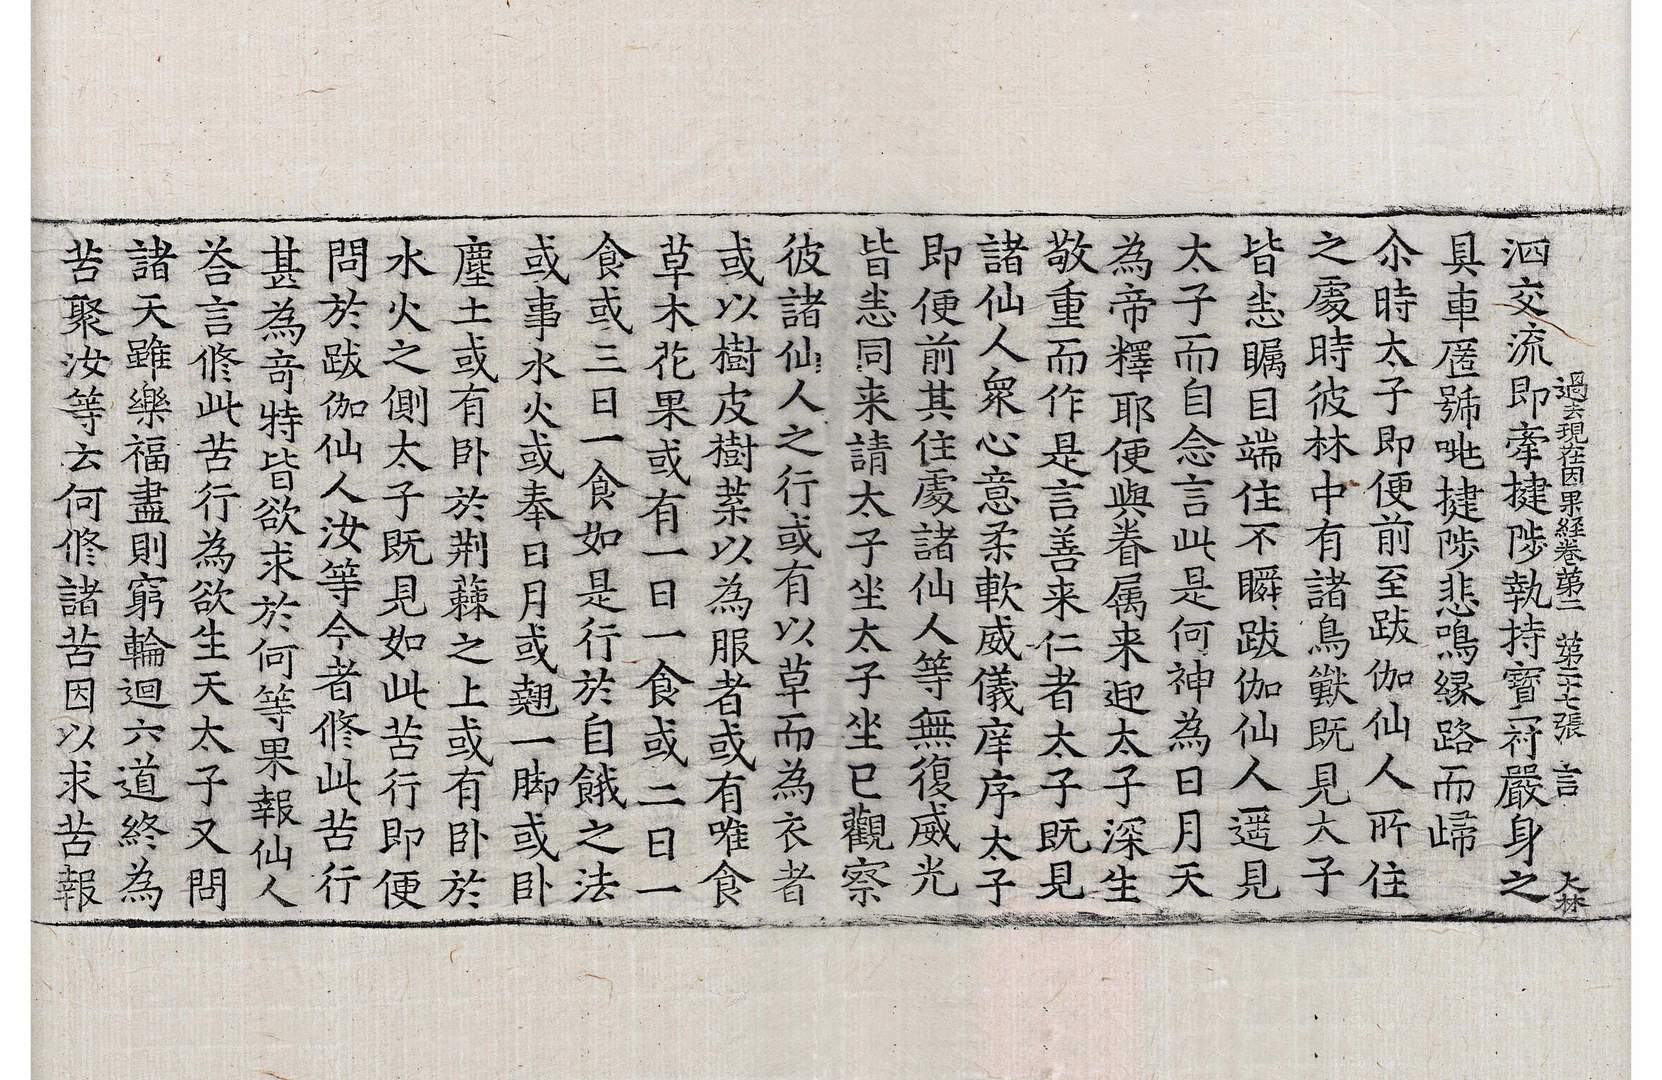 過去現在因果経巻第二 第二七張 言 大林
泗交流即牽揵陟執持寶冠嚴身之
具車匿號咷揵陟悲鳴緣路而歸
尒時太子即便前至跋伽仙人所住
之處時彼林中有諸鳥獸既見太子
皆悉矚目端住不瞬跋伽仙人遥見
太子而自念言此是何神為日月天
為帝釋耶便與眷属来迎太子深生
敬重而作是言善来仁者太子既見
諸仙人衆心意柔軟威儀庠序太子
即便前其住處諸仙人等無復威光
皆悉同来請太子坐太子坐已觀察
彼諸仙人之行或有以草而為衣者
或以樹皮樹葉以為服者或有唯食
草木花果或有一日一食或二日一
食或三日一食如是行於自餓之法
或事水火或奉日月或翹一脚或卧
塵土或有卧於荆蕀之上或有卧於
水火之側太子既見如此苦行即便
問於跋伽仙人汝等今者修此苦行
甚為奇特皆欲求於何等果報仙人
荅言修此苦行為欲生天太子又問
諸天雖樂福盡則窮輪迴六道終為
苦聚汝等云何修諸苦因以求苦報